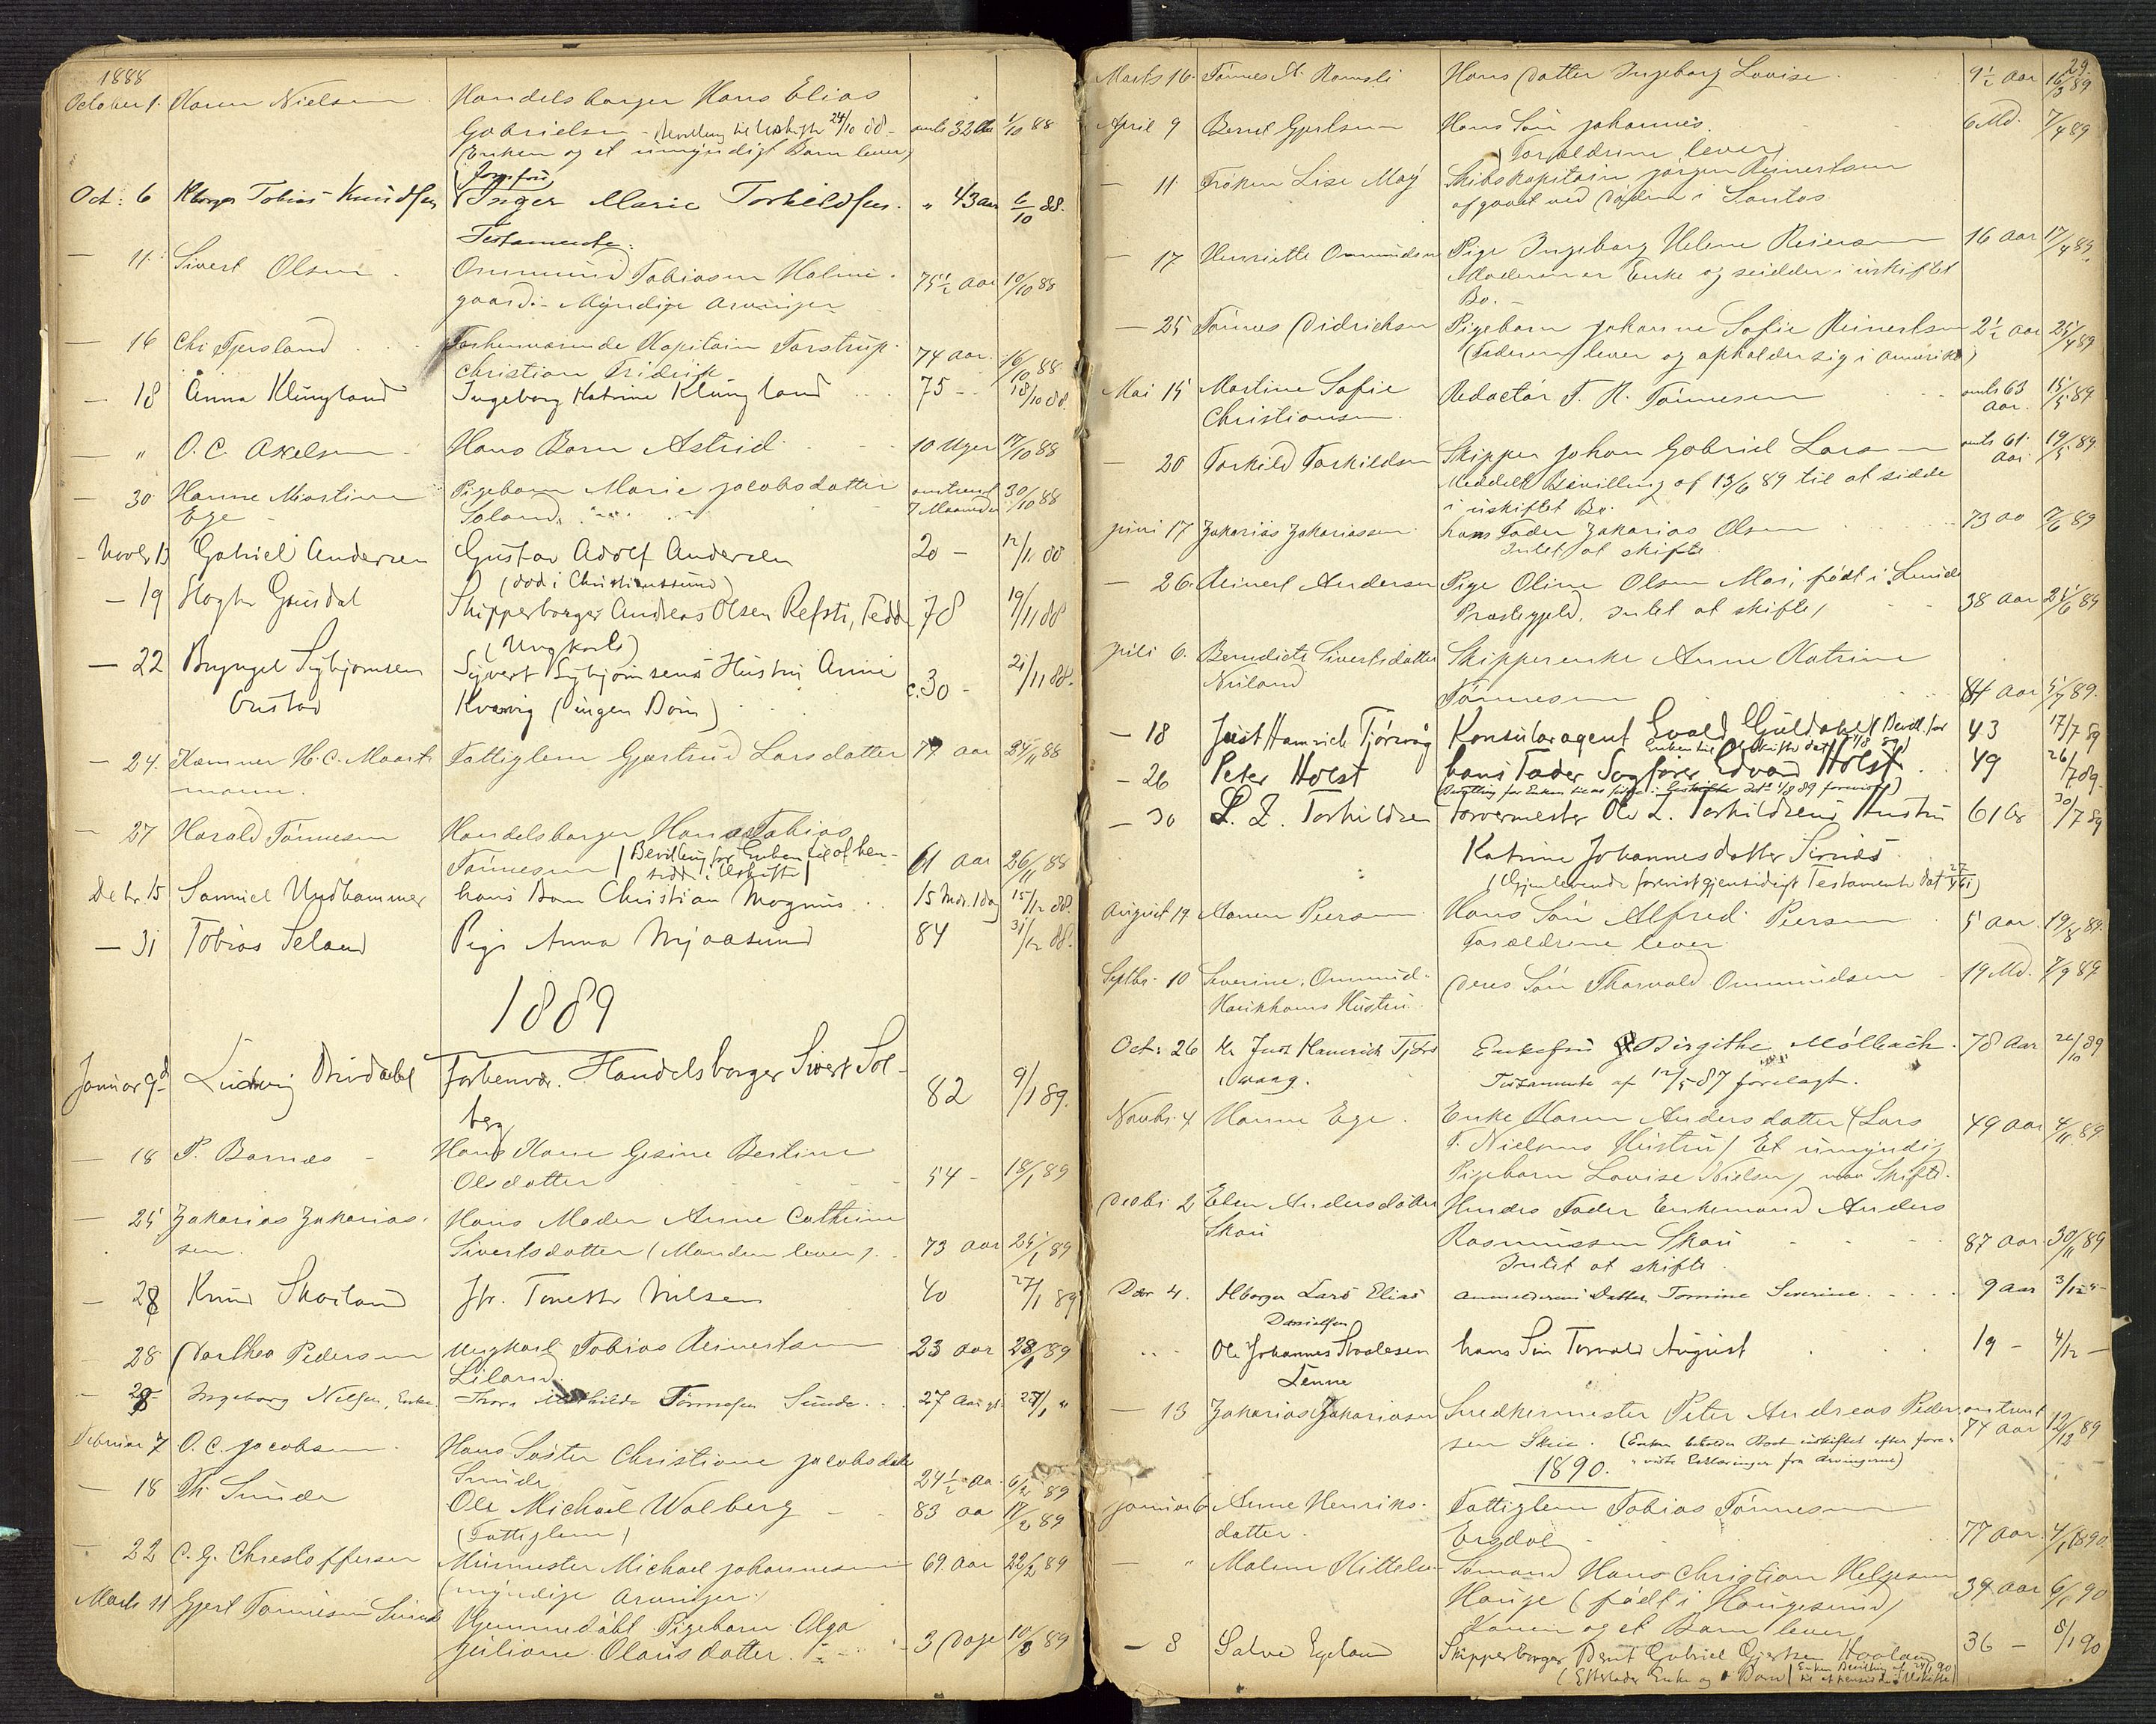 1888
October 1. Karen Nielsen Handelsborger Hans Elias
Gabrielsen - Bevilling til Uskifte 24/10 88 - omts 32 Aar 1/10 88
(Enken og et umyndigt Barn lever)
(Jomfru)
Oct: 6 Hborger Tobias Knudsen Inger Marie Torkildsen. " 43 aar 6/10 88.
Testamente.
— 11. Sivert Olsen. Ommund Tobiasen Holme-
gaard. - Myndige Arvinger 75½ aar 10/10 88
— 16 Chr Tjersland Forhenværende Kapitain Torstrup
Christian Fridrik 74 aar. 16/10 88
— 18 Anna Klungland Ingeborg Katrine Klungland 75 - 18/10 88.
— " O. C. Axelsen Hans Barn Astrid 10 Uger 17/10 88
— 30 Hanne Martine Pigebarn Marie Jacobsdatter omtrent 30/10 88
Ege Soland. 7 Maaneder
- Novbr 13 Gabriel Andersen Gustav Adolf Andersen 20 - 12/11 88
(død i Christianssund)
— 19 Skipperborger Andreas Olsen Refsti, Fedde 78 19/11 88
(Ungkarl)
— 22 Sivert Hustru Anne c. 30 - 21/11 88.
Gustav Kvavig (ingen Børn)
— 24. Kæmner H. C. Maart- Fattiglem Gjertrud Larsdatter 77 aar 24/11 88
mann.
— 27 Harald Tønnesen Handelsborger Hans Tobias
Tønnesen (Bevilling for Enken til at hen- 61 aar 26/11 88
sidde i Uskifte)
Decbr. 15 Samuel Urdhammer hans Barn Christian Magnus 15 Mdr. 1 Dag 15/12 88.
— 31 Tobias Seland Pige Anna Mjaasund 84 31/12 88.
1889
Januar 9d Ludvig Drivdahl Forhenvæ. Handelsborger Sivert Sol-
berg 82 9/1 89.
— 18 P. Barnæs - Hans Kone Gesine Bertine
Olsdatter 54 - 18/1 89
— 25 Zakarias Zakarias- Hans Moder Anne Cathrine
sen. Sivertsdatter (Manden lever). 73 aar 25/1 89
— 28 Knud Skarland Jfr. Tonette Nilsen 40 27/1 89
— 28 Dorthea Pedersen ungkarl Tobias Reinertsen 23 aar 28/1 89
Liland
— 28 Ingeborg Nilsen, Enke Thora Mathilde Tønnesen Sunde 27 Aar 27/1 "
Februar 7 O. C. Jacobsen. Hans Søster Christiane Jacobsdatter
Sunde 24½ Aa. 6/2 89
— 18 Th Sunde Ole Michael Walberg 83 aa 17/2 89
(Fattiglem)
— 22 C. G. Christoffersen Murmester Michael Johannesen 69 aar 22/2 89
(myndige Arvinger.
Marts 11 Gjert Tønnesen Sunde Hjemmedøbt Pigebarn Olga
Juliane Olausdatter. 3 Dage 10/3 89
29.
Marts 16. Tønnes A. Ramsli Hans Datter Ingeborg Lovise. 9½ aar 16/3 89
April 9 Bernt Gjertsen Hans Søn Johannes. 6 Md. 7/4 89
(Forældrene lever)
— 11 Frøken Lise May Skibskaptain Jørgen Reinertsen
afgaaet ved Døden i Santos
— 17 Henriette Ommundsen Pige Ingeborg Helene Reiersen 16 aar 17/4 89
Moderen er Enke og sidder i uskiftet
Bo. -
— 25 Tønnes Didriksen Pigebarn Johanne Sofie Reinertsen 2½ aar 25/4 89
(Faderen lever og opholder sig i Amerika)
Mai 15 Martine Sofie Redactør T. R. Tønnesen omts 63 15/5 89
Christiansen. aar.
— 20 Torkild Torkildsen Skipper Johan Gabriel Larsen omts 61 19/5 89
Meddelt Bevilling af 13/6 89 til at sidde aar
i uskiftet Bo.
Juni 17 Zakarias Zakariassen hans Fader Zakarias Olsen 73 aa 7/6 89
Intet at skifte.
— 26. Reinert Andersen Pige Oline Olsen Moi, født i Lunde
Præstegjeld, Intet at skifte, 38 aar 25/6 89
Juli 6. Benedicte Sivertsdatter Skipperenke Anne Katrine
Nuland Tønnesen 84 aar 5/7 89.
— 18 Just Hamrich Tjørsvåg Konsularagent Evald Guldahl (Bevill. for 43 17/7 89
Enken til Uskifte dat 1/8 89)
— 26 Peter Holst hans Fader Sagfører Edvard Holst. 49 26/7 89.
(Bevilling for Enken dat 1/8 89 forevist)
— 30 L. Z. Torkildsen Farvermester Ole Z. Torkildsens Hustru 61 Aar 30/7 89
Katrine Johannesdatter Sirnes
(Gjenlevende forevist gjensidigt Testamente dat
August 19. Aanen Peersen Hans Søn Alfred Peersen 5 aar. 19/8 89.
Forældrene lever.
Septbr. 10 Severine, Ommund- Deres Søn Thorvald Ommundsen 19 Md. 7/9 89.
Haukhoms Hustru.
Oct: 26 Hr Just Hamrich Tjørs- Enkefru Birgithe Mølbach. 78 Aar 26/ 89
vaag. Testamente af 12/5 87 forelagt.
Novbr. 4 Hanne Ege. Enke Karen Andersdatter (Lars 49 aar 4/11 89.
P. Nielsens Hustru) Et umyndig
Pigebarn Lovise Nielsen,
Decbr: 2 Elen Andersdatter Hendes Fader Enkemand Anders
Skau Rasmussen Skau 87 aar 30/11 89
Intet at skifte.
Dcbr 4. Hborger Lars Elias Anmelderens Datter Tomine Severine 9 aar 3/12 -
Danielsen
" - Ole Johannes Staalesen hans Søn Torvald August 19 - 4/12 -
Lenne
— 13 Zakarias Zakariasen Snedkermester Peter Andreas Peder- omtrent
sen Skeie. (Enken beholder Boet uskiftet efter fore- 74 aar 12/12 89
viste Erklæringer fra Arvingerne)
1890.
Januar 6 Anne Henriks- Fattiglem Tobias Tønnesen
datter. Ersdal 77 aar. 4/1 1890.
— " Malene Kittels- Sømand Hans Christian Helgesen
Hauge (født i Haugesund) 39 aar 6/1 90
Konen og et Barn lever,
— 8 Salve Egeland Skipperborger Bernt Gabriel Gjertsen Haaland 36 - 8/1 90
(Efterlader Enke og Børn) Enken Bevilling af 24/1 90
til at hensidde i Uskifte)